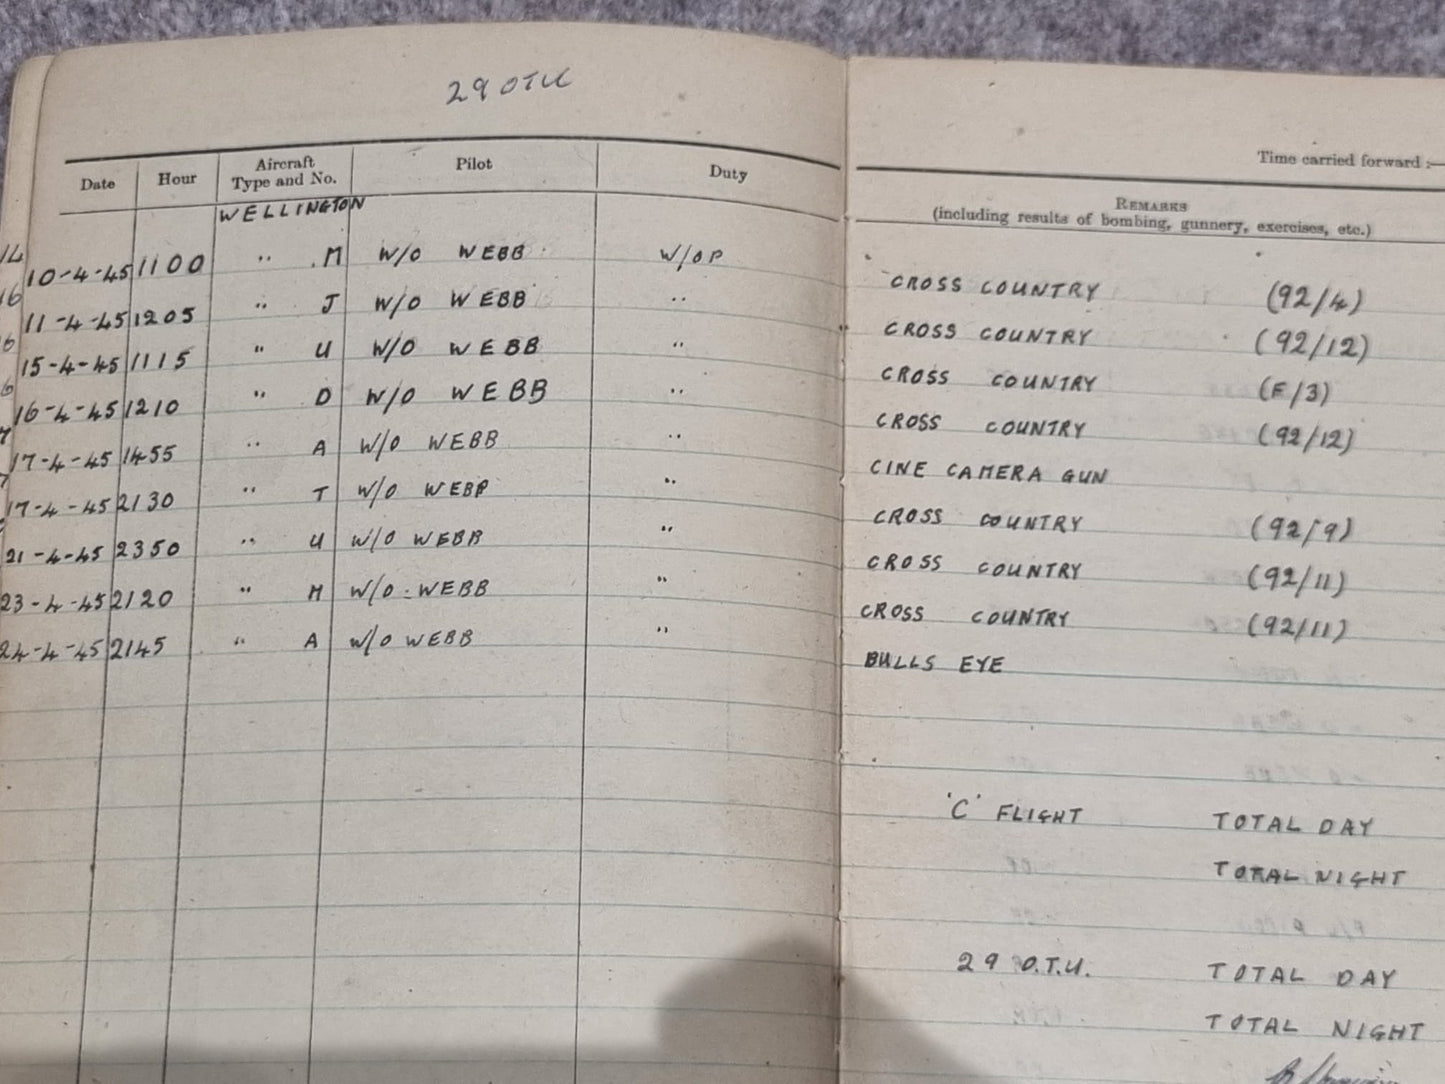 29 OTU
Time carried forward :—
Date Hour Aircraft Type and No. Pilot Duty REMARKS (including results of bombing, gunnery, exercises, etc.)
WELLINGTON
10-4-45 1100 " M W/O WEBB W/OP CROSS COUNTRY (92/4)
11-4-45 1205 " J W/O WEBB " CROSS COUNTRY (92/12)
15-4-45 1115 " U W/O WEBB " CROSS COUNTRY (F/3)
16-4-45 1210 " D W/O WEBB " CROSS COUNTRY (92/12)
17-4-45 1455 " A W/O WEBB " CINE CAMERA GUN
17-4-45 2130 " T W/O WEBB " CROSS COUNTRY (92/9)
21-4-45 2350 " U W/O WEBB " CROSS COUNTRY (92/11)
23-4-45 2120 " M W/O WEBB " CROSS COUNTRY (92/11)
24-4-45 2145 " A W/O WEBB " BULLS EYE
'C' FLIGHT TOTAL DAY
TOTAL NIGHT
29 O.T.U. TOTAL DAY
TOTAL NIGHT